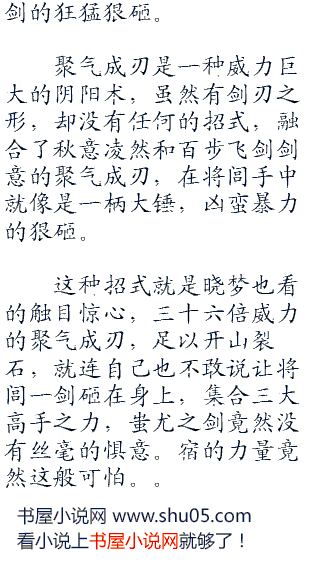 剑的狂猛狠砸。
聚气成刃是一种威力巨
大的阴阳术，虽然有剑刃之
形，却没有任何的招式，融
合了秋意凌然和百步飞剑剑
意的聚气成刃，在将闾手中
就像是一柄大锤，凶蛮暴力
的狠砸。
这种招式就是晓梦也看
的触目惊心，三十六倍威力
的聚气成刃，足以开山裂
石，就连自己也不敢说让将
闾一剑砸在身上，集合三大
高手之力，蚩尤之剑竟然没
有丝毫的惧意。宿的力量竟
然这般可怕。。
书屋小说网 www.shu05.com
看小说上书屋小说网就够了！